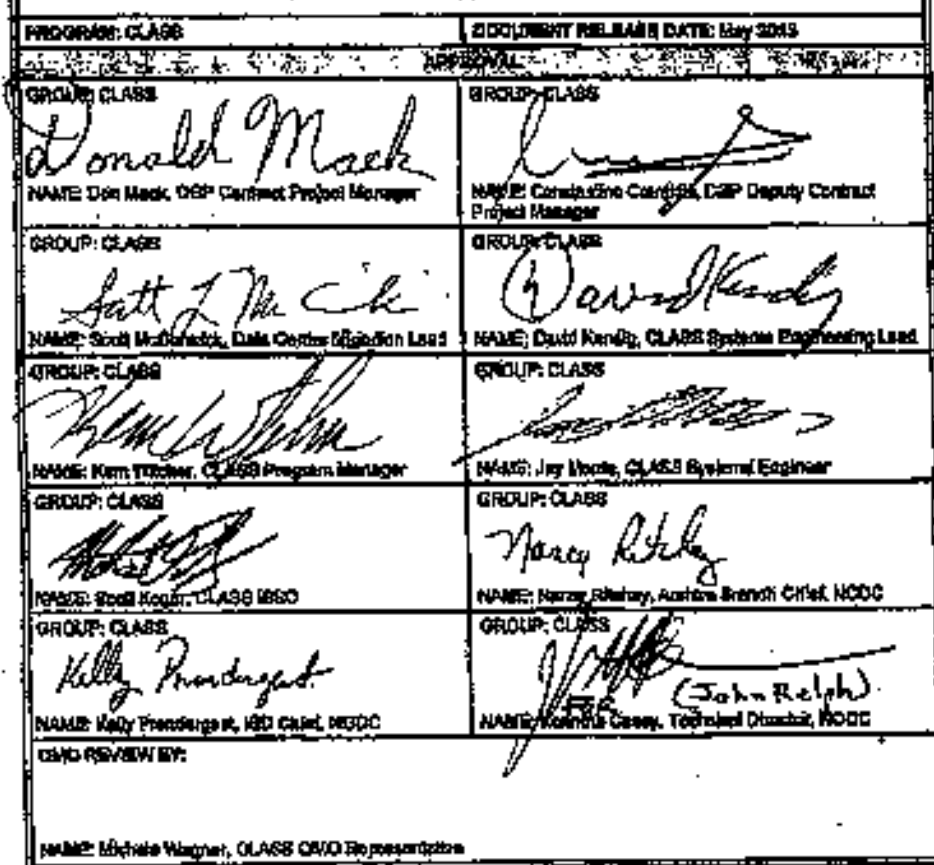 PROGRAM: CLASS
DOCUMENT RELEASE DATE: May 2013
APPROVAL
GROUP: CLASS
Donald Mack
NAME: Don Mack, Contract Project Manager
GROUP: CLASS
NAME: Constantino Deputy Contract
Project Manager
GROUP: CLASS
Scott
NAME: Scott Data Center Migration Lead
GROUP: CLASS
David
NAME: David CLASS Systems Engineering Lead
GROUP: CLASS
NAME: Kern CLASS Program Manager
GROUP: CLASS
NAME: Jay CLASS Systems Engineer
GROUP: CLASS
NAME: Scott Koger, CLASS ISSO
GROUP: CLASS
Nancy Ritchey
NAME: Nancy Ritchey, Archive Branch Chief, NCDC
GROUP: CLASS
Kelly Prendergast
NAME: Kelly Prendergast, Chief, NGDC
GROUP: CLASS
(John Relph)
NAME: Casey, Technical Director, NODC
CMO REVIEW BY:
NAME: Michele Wagner, CLASS CMO Representative